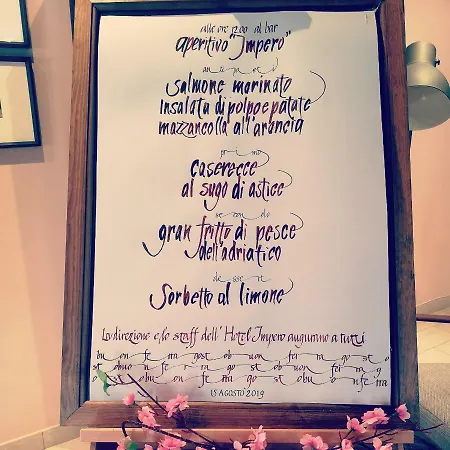 alle ore 12.00 al bar
aperitivo "Impero"
antipasti
salmone marinato
insalata di polpo e patate
mazzancolla all'arancia
primo
caserecce
al sugo di astice
secondo
gran fritto di pesce
dell'adriatico
dessert
Sorbetto al limone
La direzione e lo staff dell'Hotel Impero augurano a tutti
buon ferragosto buon ferragosto
15 AGOSTO 2019